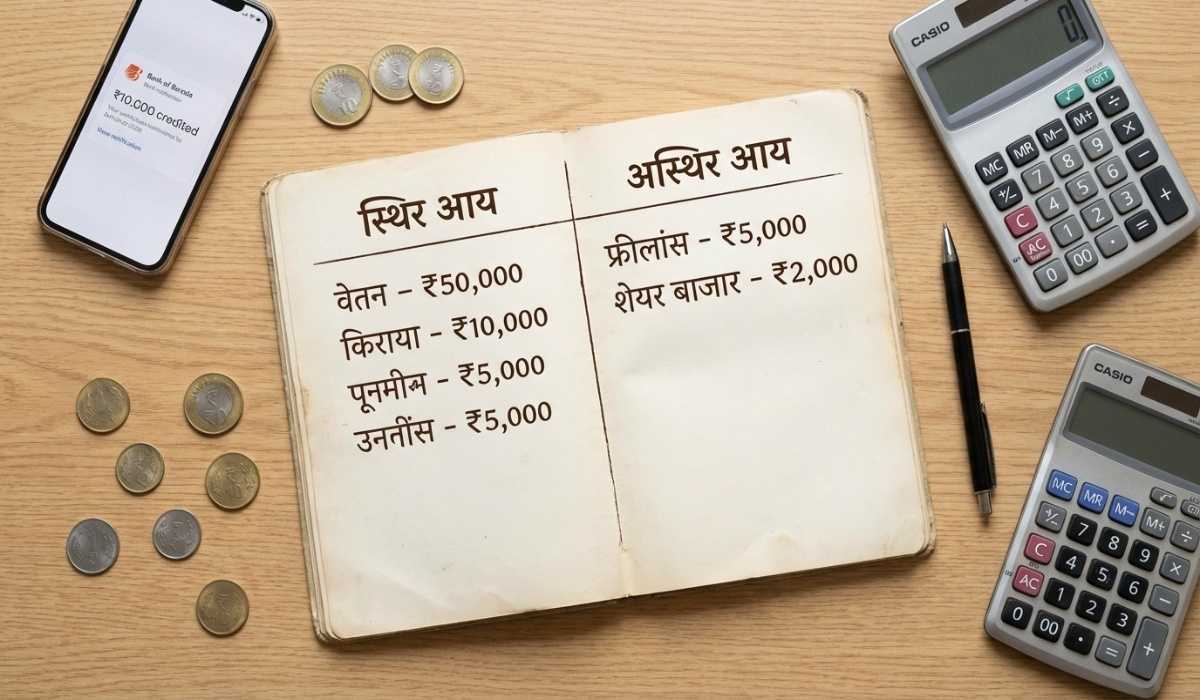 Bank of Baroda
₹10,000 credited
View notification
स्थिर आय
वेतन – ₹50,000
किराया – ₹10,000
– ₹5,000
उनतींस – ₹5,000
अस्थिर आय
फ्रीलांस – ₹5,000
शेयर बाजार – ₹2,000
CASIO
0
MC MR M– M+ √ OFF ÷
+/− 7 8 9 ×
C 4 5 6 −
AC 1 2 3 +
0 00 · =
CASIO
MC MR M– M+
+/− 7 8 9 ÷
C 4 5 6 ×
AC 1 2 3 −
0 00 · = +